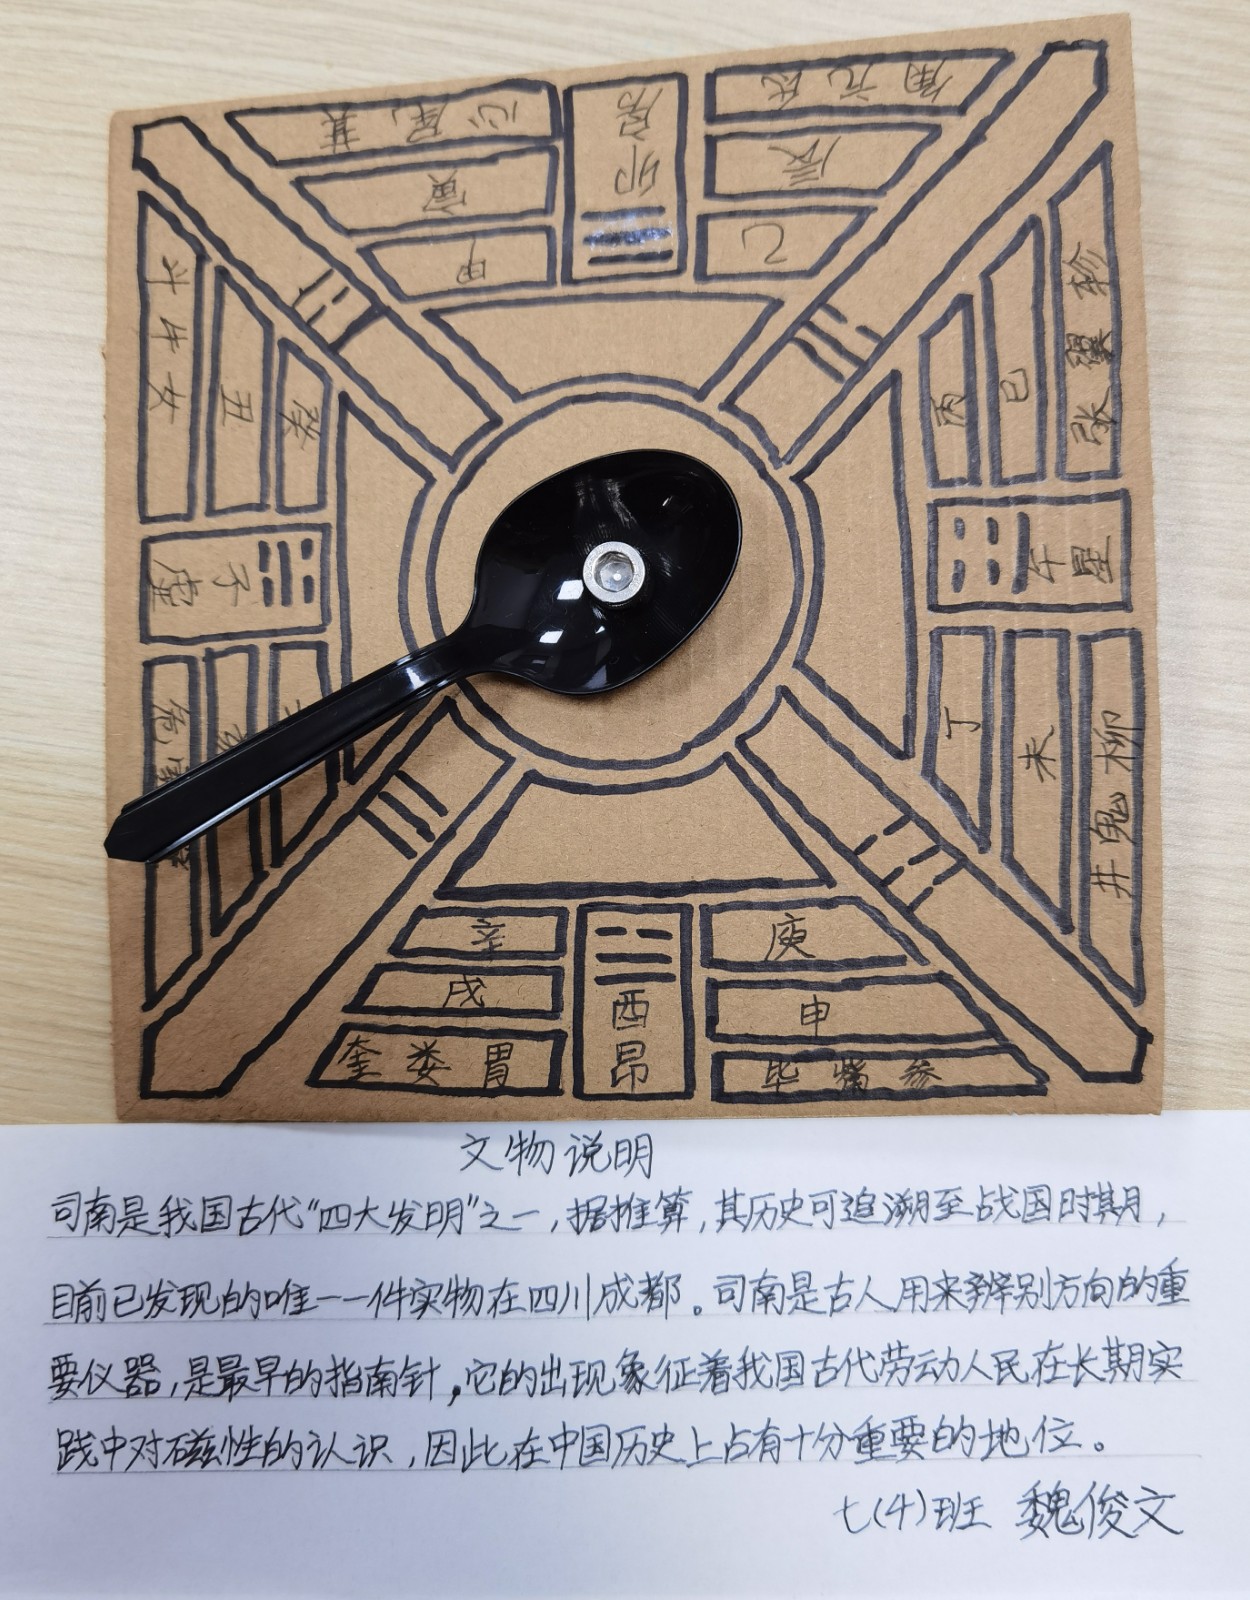 角 亢 氐
房
心 尾 箕
辰
卯
寅
乙
甲
斗 牛 女
丑
癸
轸
张
巳
丙
子
虚
午 星
危
丁
未
井 鬼 柳
辛
庚
戌
申
酉
奎 娄 胃
昴
毕 觜 参
文物说明
司南是我国古代“四大发明”之一,据推算,其历史可追溯至战国时期,
目前已发现的唯一一件实物在四川成都。司南是古人用来辨别方向的重
要仪器,是最早的指南针,它的出现象征着我国古代劳动人民在长期实
践中对磁性的认识,因此在中国历史上占有十分重要的地位。
七(4)班 魏俊文